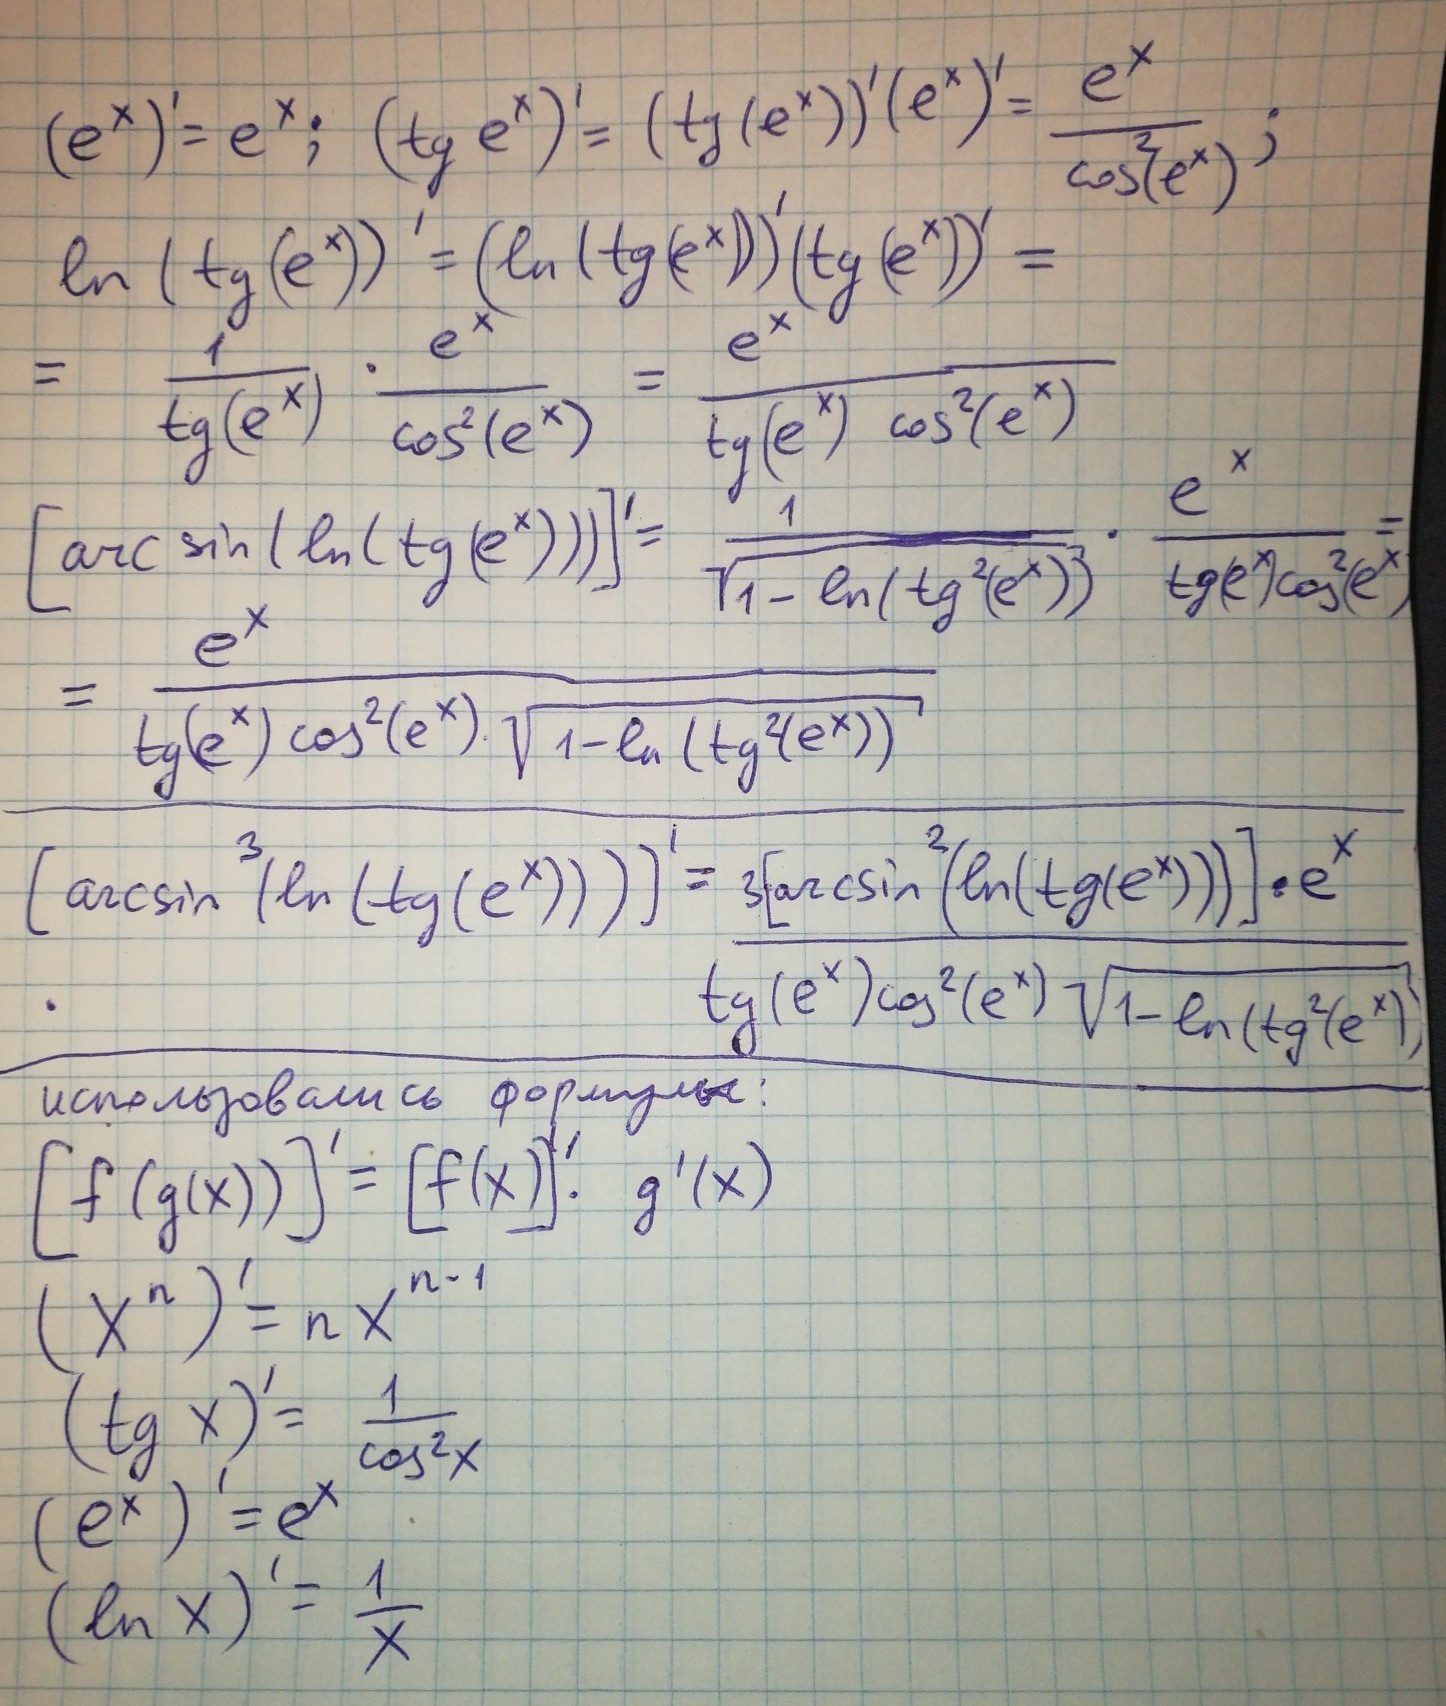 (eˣ)' = eˣ; (tg eˣ)' = (tg(eˣ))'(eˣ)' = eˣ / cos²(eˣ);
ln(tg(eˣ))' = (ln(tg(eˣ)))'(tg(eˣ))' =
= 1 / tg(eˣ) · eˣ / cos²(eˣ) = eˣ / tg(eˣ) cos²(eˣ)
[arc sin(ln(tg(eˣ)))]' = 1 / √(1 - ln(tg²(eˣ))) · eˣ / tg(eˣ)cos²(eˣ) =
= eˣ / tg(eˣ) cos²(eˣ) · √(1 - ln(tg²(eˣ)))
[arcsin³(ln(tg(eˣ)))]' = 3[arcsin²(ln(tg(eˣ)))] · eˣ / tg(eˣ)cos²(eˣ) √(1 - ln(tg²(eˣ)))
использовались формулы:
[f(g(x))]' = [f(x)]' · g'(x)
(xⁿ)' = n xⁿ⁻¹
(tg x)' = 1 / cos²x
(eˣ)' = eˣ
(ln x)' = 1 / x